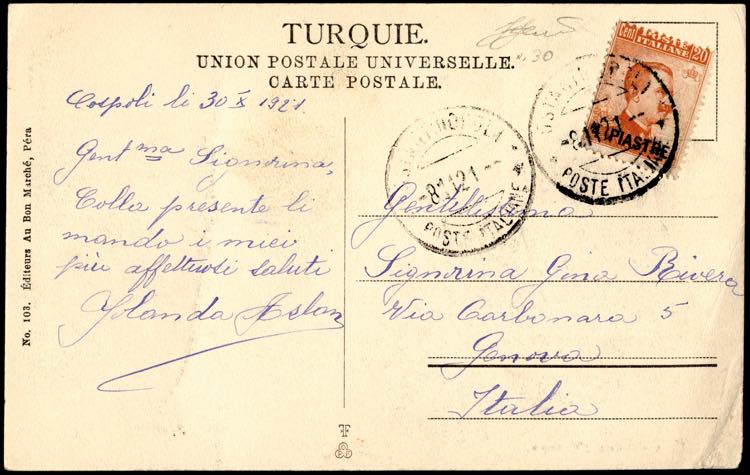 TURQUIE.
UNION POSTALE UNIVERSELLE.
CARTE POSTALE.
No. 103. Éditeurs Au Bon Marché, Péra
Cospoli li 30 X 1921.
Gent ma Signorina,
Colla presente li
mando i miei
più affettuosi saluti
Jolanda Aslan
30
Cent 20
ITALIANE
PIASTRE
POSTE ITALIANE
8.11.21
POSTE ITALIANE
Gentilissima
Signorina Gina Rivera
Via Carbonara 5
Genova
Italia